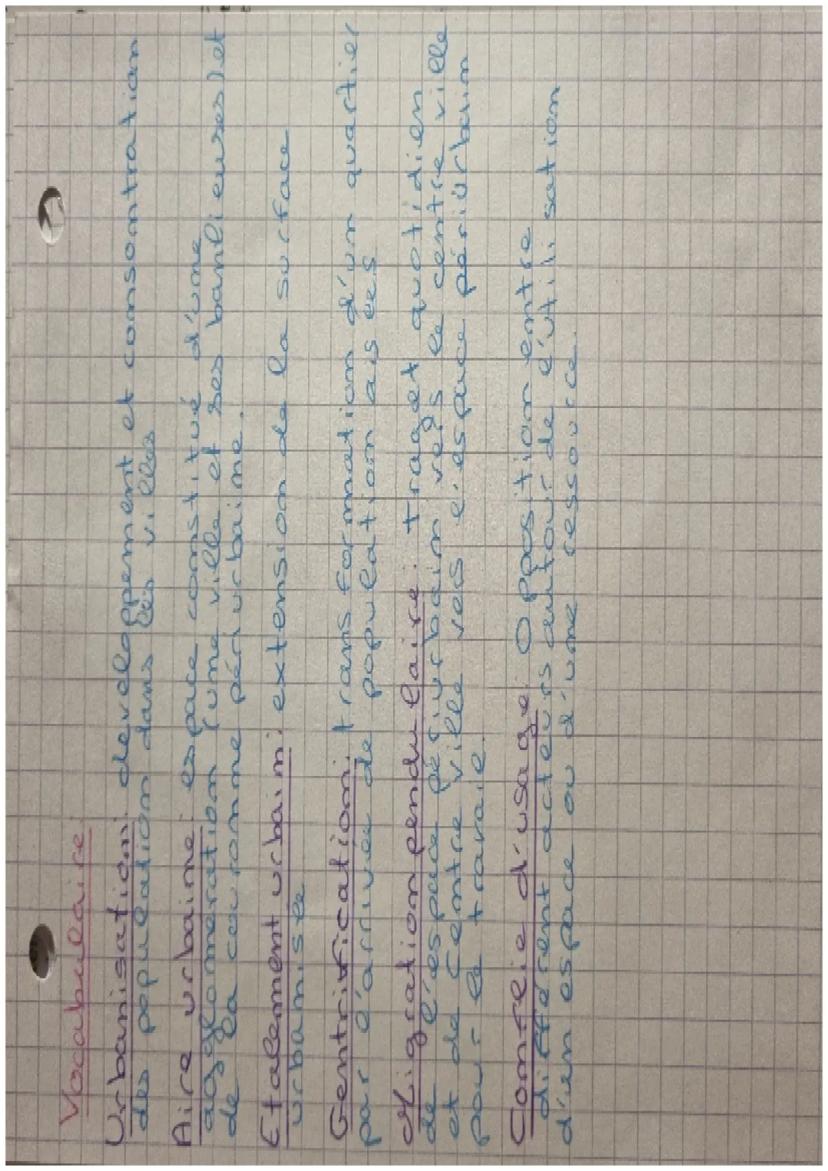 Vocabulaire:
Urbanisation: developpement et consontration
des population dans les villes
Aire urbaine: espace constitué d'une
agglomération (une ville et ses banlieuses) et
de la couronne périurbaine.
Etalement urbain: extension de la surface
urbanisée
Gentrification: transformation d'un quartier
par l'arrivée de population aisées
Migration pendulaire: traget quotidien
de l'espace périurbain vers le centre ville
et de centre ville vers l'espace périurbain
pour le travaile.
Conflie d'usage: Opposition entre
différent acteurs autour de l'utilisation
d'un espace ou d'une ressource.